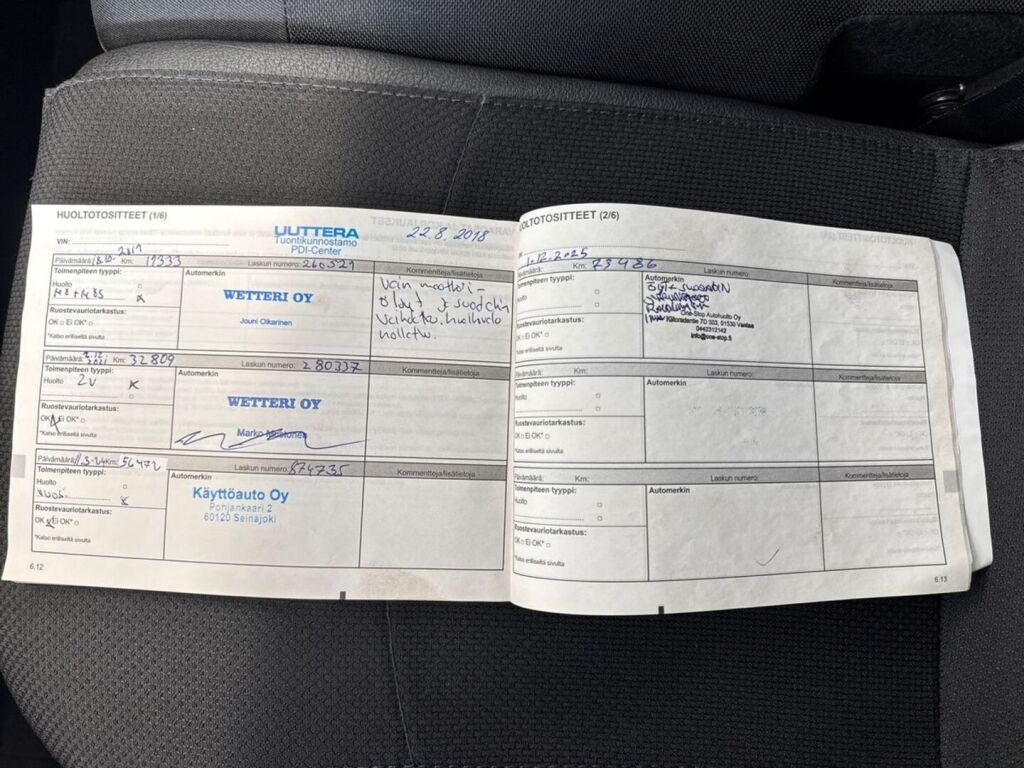 HUOLTOTOSITTEET (1/6)
UUTTERA
Tuontikunnostamo
PDI-Center
22.8.2018
VIN:
Päivämäärä: Km: 19333 Laskun numero: 260321 Kommentteja/lisätietoja
Toimenpiteen tyyppi:
Huolto
Automerkin
WETTERI OY
Jouni Oikarinen
Vain moottori-
öljyt ja suodatin
vaihdettu.
nollattu.
Ruostevauriotarkastus:
OK Ei OK*
*Katso erilliseltä sivulta
Päivämäärä: Km: 32809 Laskun numero: 280337 Kommentteja/lisätietoja
Toimenpiteen tyyppi:
Huolto 2V x
Automerkin
WETTERI OY
Marko
Ruostevauriotarkastus:
OK Ei OK*
*Katso erilliseltä sivulta
Päivämäärä: Km: 56472 Laskun numero: 874735 Kommentteja/lisätietoja
Toimenpiteen tyyppi:
Huolto
x
Automerkin
Käyttöauto Oy
Pohjankaari 2
60120 Seinäjoki
Ruostevauriotarkastus:
OK Ei OK*
*Katso erilliseltä sivulta
6.12
HUOLTOTOSITTEET (2/6)
1.12.2025
Km: 73486 Laskun numero: Kommentteja/lisätietoja
Toimenpiteen tyyppi:
Huolto
Automerkin
Öljyt + suodatin
One-Stop Autohuolto Oy
Kiitoradantie 7D 303, 01530 Vantaa
0442312142
info@one-stop.fi
Ruostevauriotarkastus:
OK Ei OK*
*Katso erilliseltä sivulta
Päivämäärä: Km: Laskun numero: Kommentteja/lisätietoja
Toimenpiteen tyyppi:
Huolto
Automerkin
Ruostevauriotarkastus:
OK Ei OK*
*Katso erilliseltä sivulta
Päivämäärä: Km: Laskun numero: Kommentteja/lisätietoja
Toimenpiteen tyyppi:
Huolto
Automerkin
Ruostevauriotarkastus:
OK Ei OK*
*Katso erilliseltä sivulta
6.13